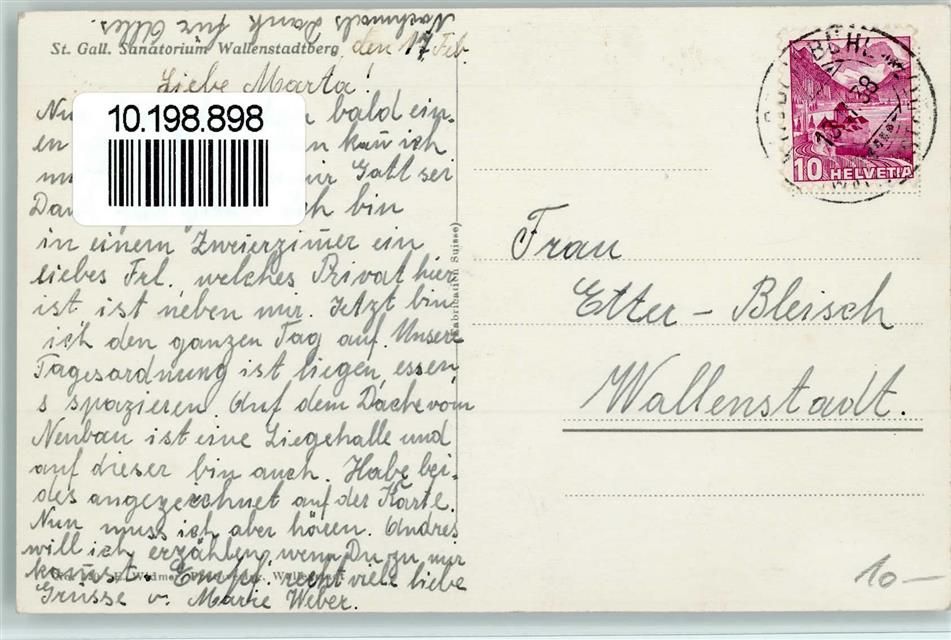 Nochmals Dank für Alles.
St. Gall. Sanatorium Wallenstadtberg, den 17. Feb.
Liebe Marta!
10.198.898
Nu bald ein-
en n kan̄ ich
mir Gott sei
Da ch bin
in einem Zweierzim̄er ein
liebes Frl. welches Privat hier
ist ist neben mir. Jetzt bin
ich den ganzen Tag auf. Unsere
Tagesordnung ist liegen, essen
s spazieren. Auf dem Dache vom
Neubau ist eine Liegehalle und
auf dieser bin auch. Habe bei-
des angezeichnet auf der Karte.
Nun muss ich aber hören. Andres
will ich erzählen, wenn Du zu mir
kom̄st. Empf. recht viele liebe
Grüsse v. Marie Weber.
E. Widmer, Wallenstadt
(Fabrication Suisse)
10 HELVETIA
38
Frau
Etter-Bleisch
Wallenstadt.
10—